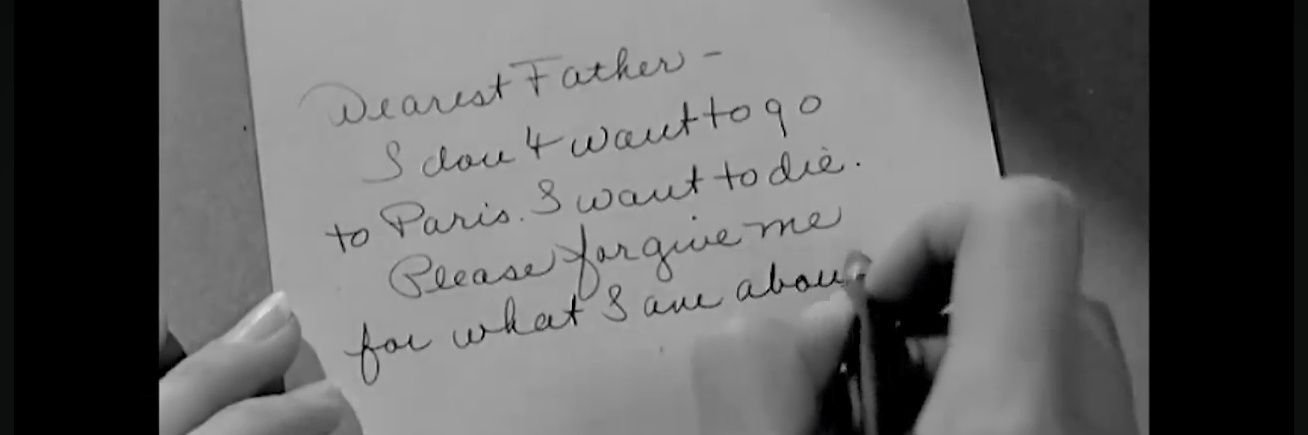 Dearest Father -
I don't want to go
to Paris. I want to die.
Please forgive me
for what I am abou